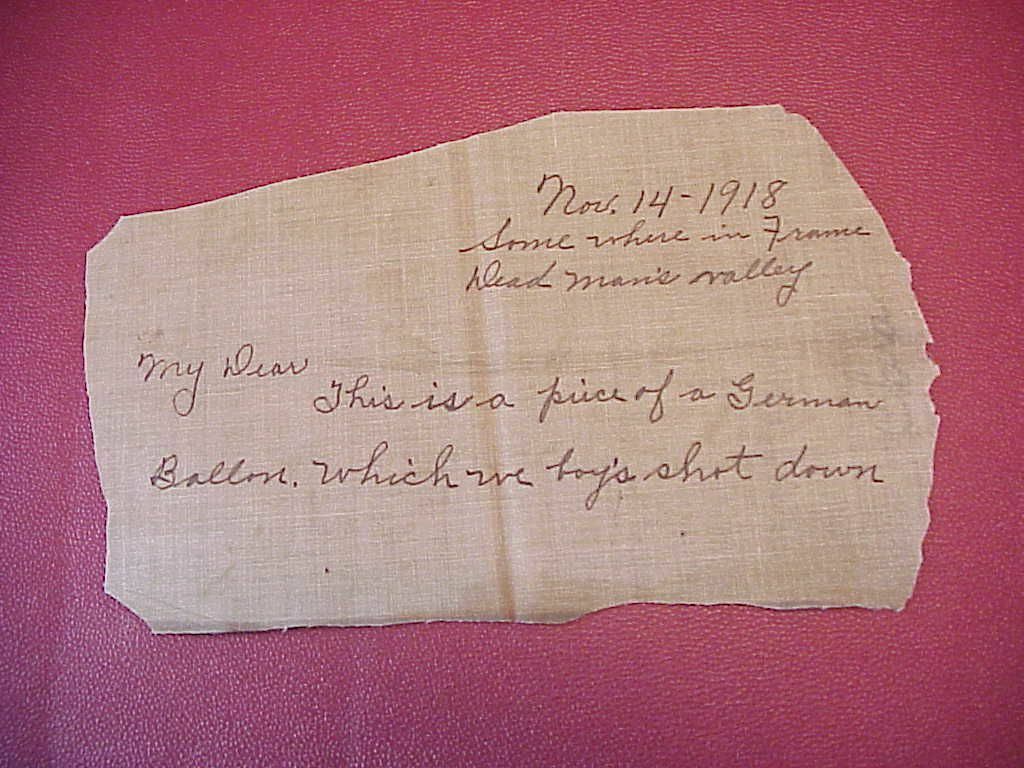 Nov. 14-1918
Some where in France
Dead man's valley
My Dear
This is a piece of a German
Ballon. which we boy's shot down